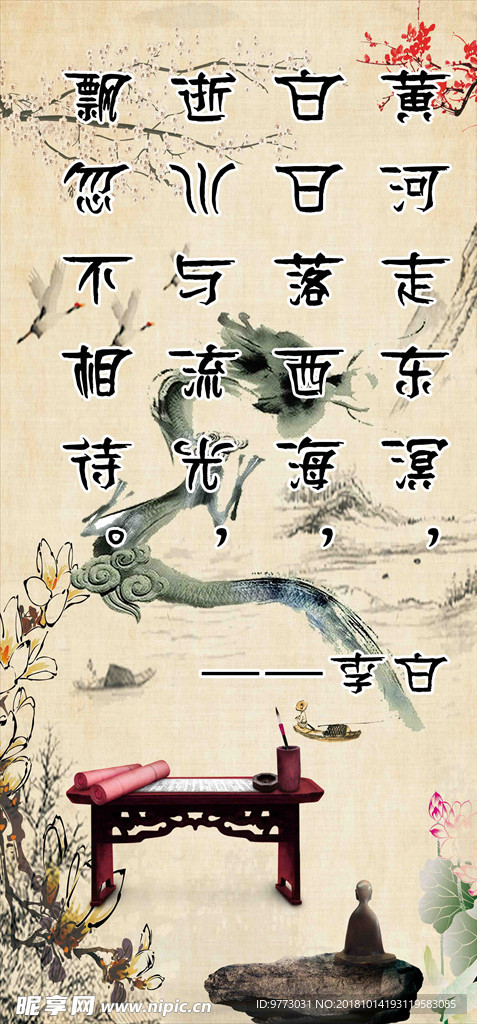 黄河走东溟，
白日落西海，
逝川与流光，
飘忽不相待。
——李白
昵享网 www.nipic.cn
ID:9773031 NO:20181014193119583085